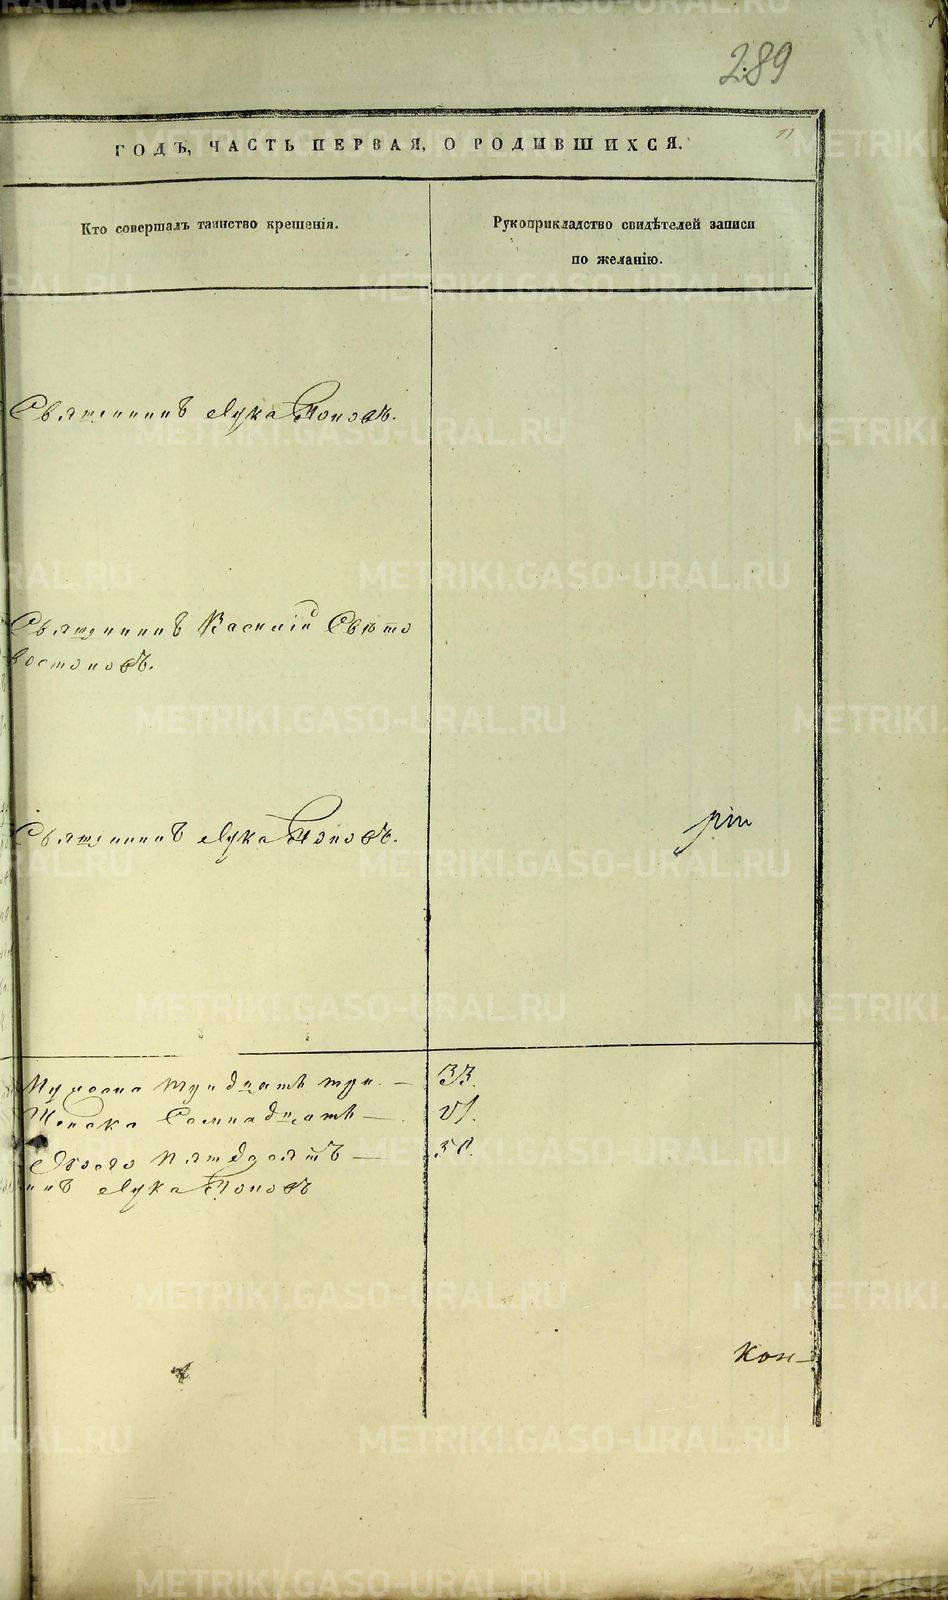 289
ГОДЪ, ЧАСТЬ ПЕРВАЯ, О РОДИВШИХСЯ.
Кто совершалъ таинство крещенія.
Рукоприкладство свидѣтелей записи
по желанію.
Священникъ Лука Поповъ.
Священникъ Василій Свѣто
востоковъ.
Священникъ Лука Поповъ.
Мужеска тридцать три. — 33.
Женска Семнадцать — 17.
Обоего пятьдесятъ — 50.
никъ Лука Поповъ
METRIKI.GASO-URAL.RU